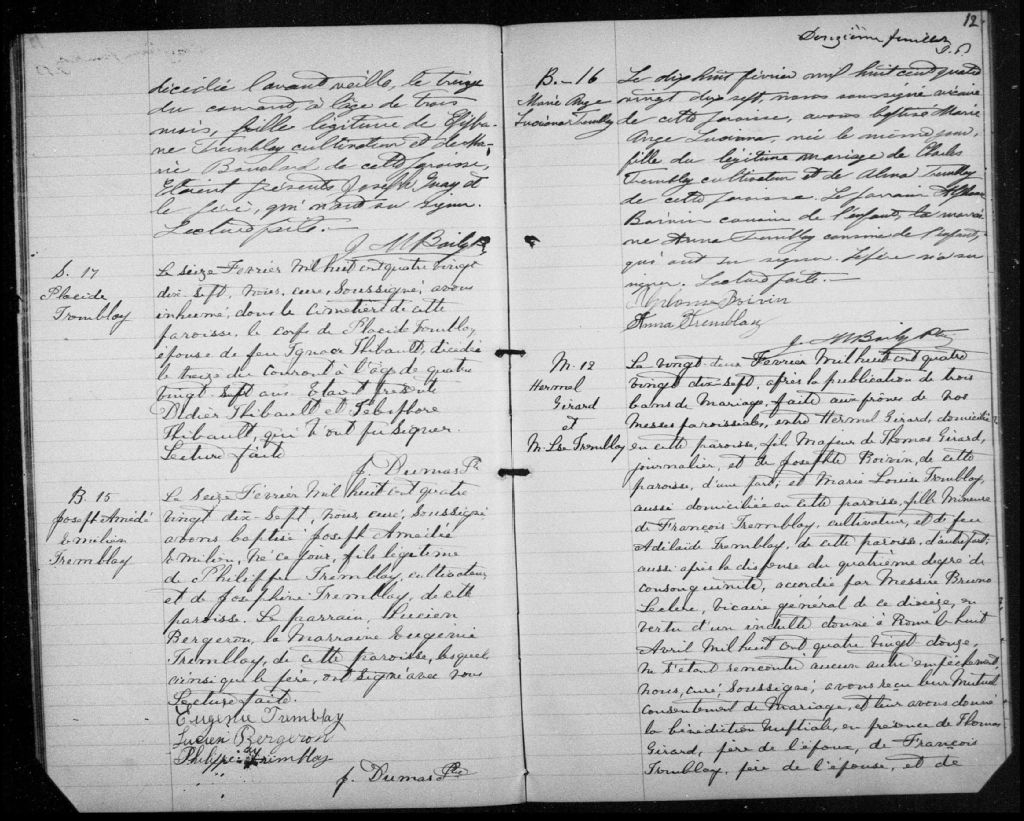 décédée l'avant veille, le treize
du courant, à l'âge de trois
mois, fille légitime de
Tremblay cultivateur et de Ma-
rie Bouchard de cette paroisse,
Etaient présents Joseph Guay et
le père, qui n'ont su signer.
Lecture faite.
J M Baily Ptre
S. 17
Placide
Tremblay
Le seize Fevrier Mil huit cent quatre vingt
dix-sept, nous, curé, Soussigné, avons
inhumé, dans le Cimetière de cette
paroisse, le corps de Placide Tremblay,
épouse de feu Ignace Thibault, décédée
le treize du Courant à l'âge de quatre
vingt sept ans. Etait présents
Didier Thibault et
Thibault, qui n'ont pu signer.
Lecture faite
J. Dumas Ptre
B. 15
Joseph Amédé
Emilien
Tremblay
Le Seize Fevrier Mil huit cent quatre
vingt dix-sept, nous, curé, Soussigné
avons baptisé Joseph Amédée
Emilien, né ce jour, fils légitime
de Philippe Tremblay, cultivateur,
et de Joséphine Tremblay, de cette
paroisse. Le parrain, Lucien
Bergeron, la Marraine Eugénie
Tremblay, de cette paroisse, lesquels
ainsi que le père, ont signé avec nous
Lecture faite.
Eugénie Tremblay
Lucien Bergeron
Philippe Tremblay
J. Dumas Ptre
12
Douzième feuillet
B.-16
Marie Ange
Lucienne Tremblay
Le dix huit février mil huit cent quatre
vingt dix sept, nous soussigné vicaire
de cette paroisse, avons baptisé Marie
Ange Lucienne, née le même jour,
fille du légitime mariage de Charles
Tremblay cultivateur et de Alma Tremblay
de cette paroisse. Le parrain
Boivin cousin de l'enfant, la marrai-
ne Anna Tremblay cousine de l'enfant,
qui ont su signer. Le père n'a su
signer. Lecture faite.
Boivin
Anna Tremblay
J. M Baily Ptre
M-12
Hermel
Girard
et
M. Lse Tremblay
Le vingt-deux Fevrier Mil huit cent quatre
vingt dix-sept, après la publication de trois
bans de Mariage, faite aux prônes de nos
Messes paroissiales, entre Hermel Girard, domicilié
en cette paroisse, fils Majeur de Thomas Girard,
journalier, et de Josephte Boivin, de cette
paroisse, d'une part; et Marie Louise Tremblay,
aussi domiciliée en cette paroisse, fille Mineure
de François Tremblay, cultivateur, et de feu
Adélaïde Tremblay, de cette paroisse, d'autre part;
aussi après la dispense du quatrième degré de
consanguinité, accordée par Messire Bruno
Leclerc, Vicaire général de ce diocèse, en
vertu d'un indulte donné à Rome le huit
Avril Mil huit cent quatre vingt douze,
ne s'étant rencontré aucun autre empêchement,
nous, curé, Soussigné, avons reçu leur Mutuel
consentement de Mariage, et leur avons donné
la bénédiction Nuptiale, en présence de Thomas
Girard, père de l'époux, de François
Tremblay, père de l'épouse, et de